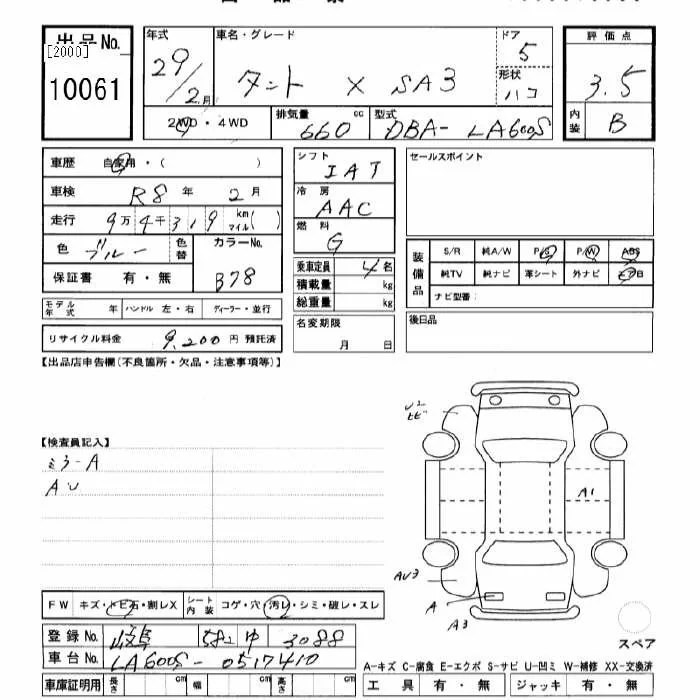 出品No. 年式 車名・グレード ドア 評価点
[2000] 29/2月 タント X SA3 5 3.5
10061 形状 ハコ 内装 B
2WD・4WD 排気量 660 cc 型式 DBA-LA600S
車歴 自家用・( ) シフト IAT セールスポイント
車検 R8年 2月 冷房 AAC
走行 9万4千319 km マイル( ) 燃料 G
色 ブルー 色替 カラーNo. B78
装備品 S/R 純A/W P/S P/W ABS
乗車定員 4名 純TV 純ナビ 革シート 外ナビ エアB
保証書 有・無 積載量 kg ナビ型番:
モデル年式 年 ハンドル 左・右 ディーラー・並行 総重量 kg
リサイクル料金 9,200円 預託済 名変期限 月 日 後日品
【出品店申告欄(不良箇所・欠品・注意事項等)】
【検査員記入】
ミラーA
AU
U2
ヒビ
A1
AU3
A
A3
スペア
FW キズ・トビ石・割レX シート内装 コゲ・穴・汚レ・シミ・破レ・スレ
登録No. 岐阜 582 ゆ 3088
車台No. LA600S-0517410
A-キズ C-腐食 E-エクボ S-サビ U-凹ミ W-補修 XX-交換済
車庫証明用 長さ cm 幅 cm 高さ cm 工具 有・無 ジャッキ 有・無